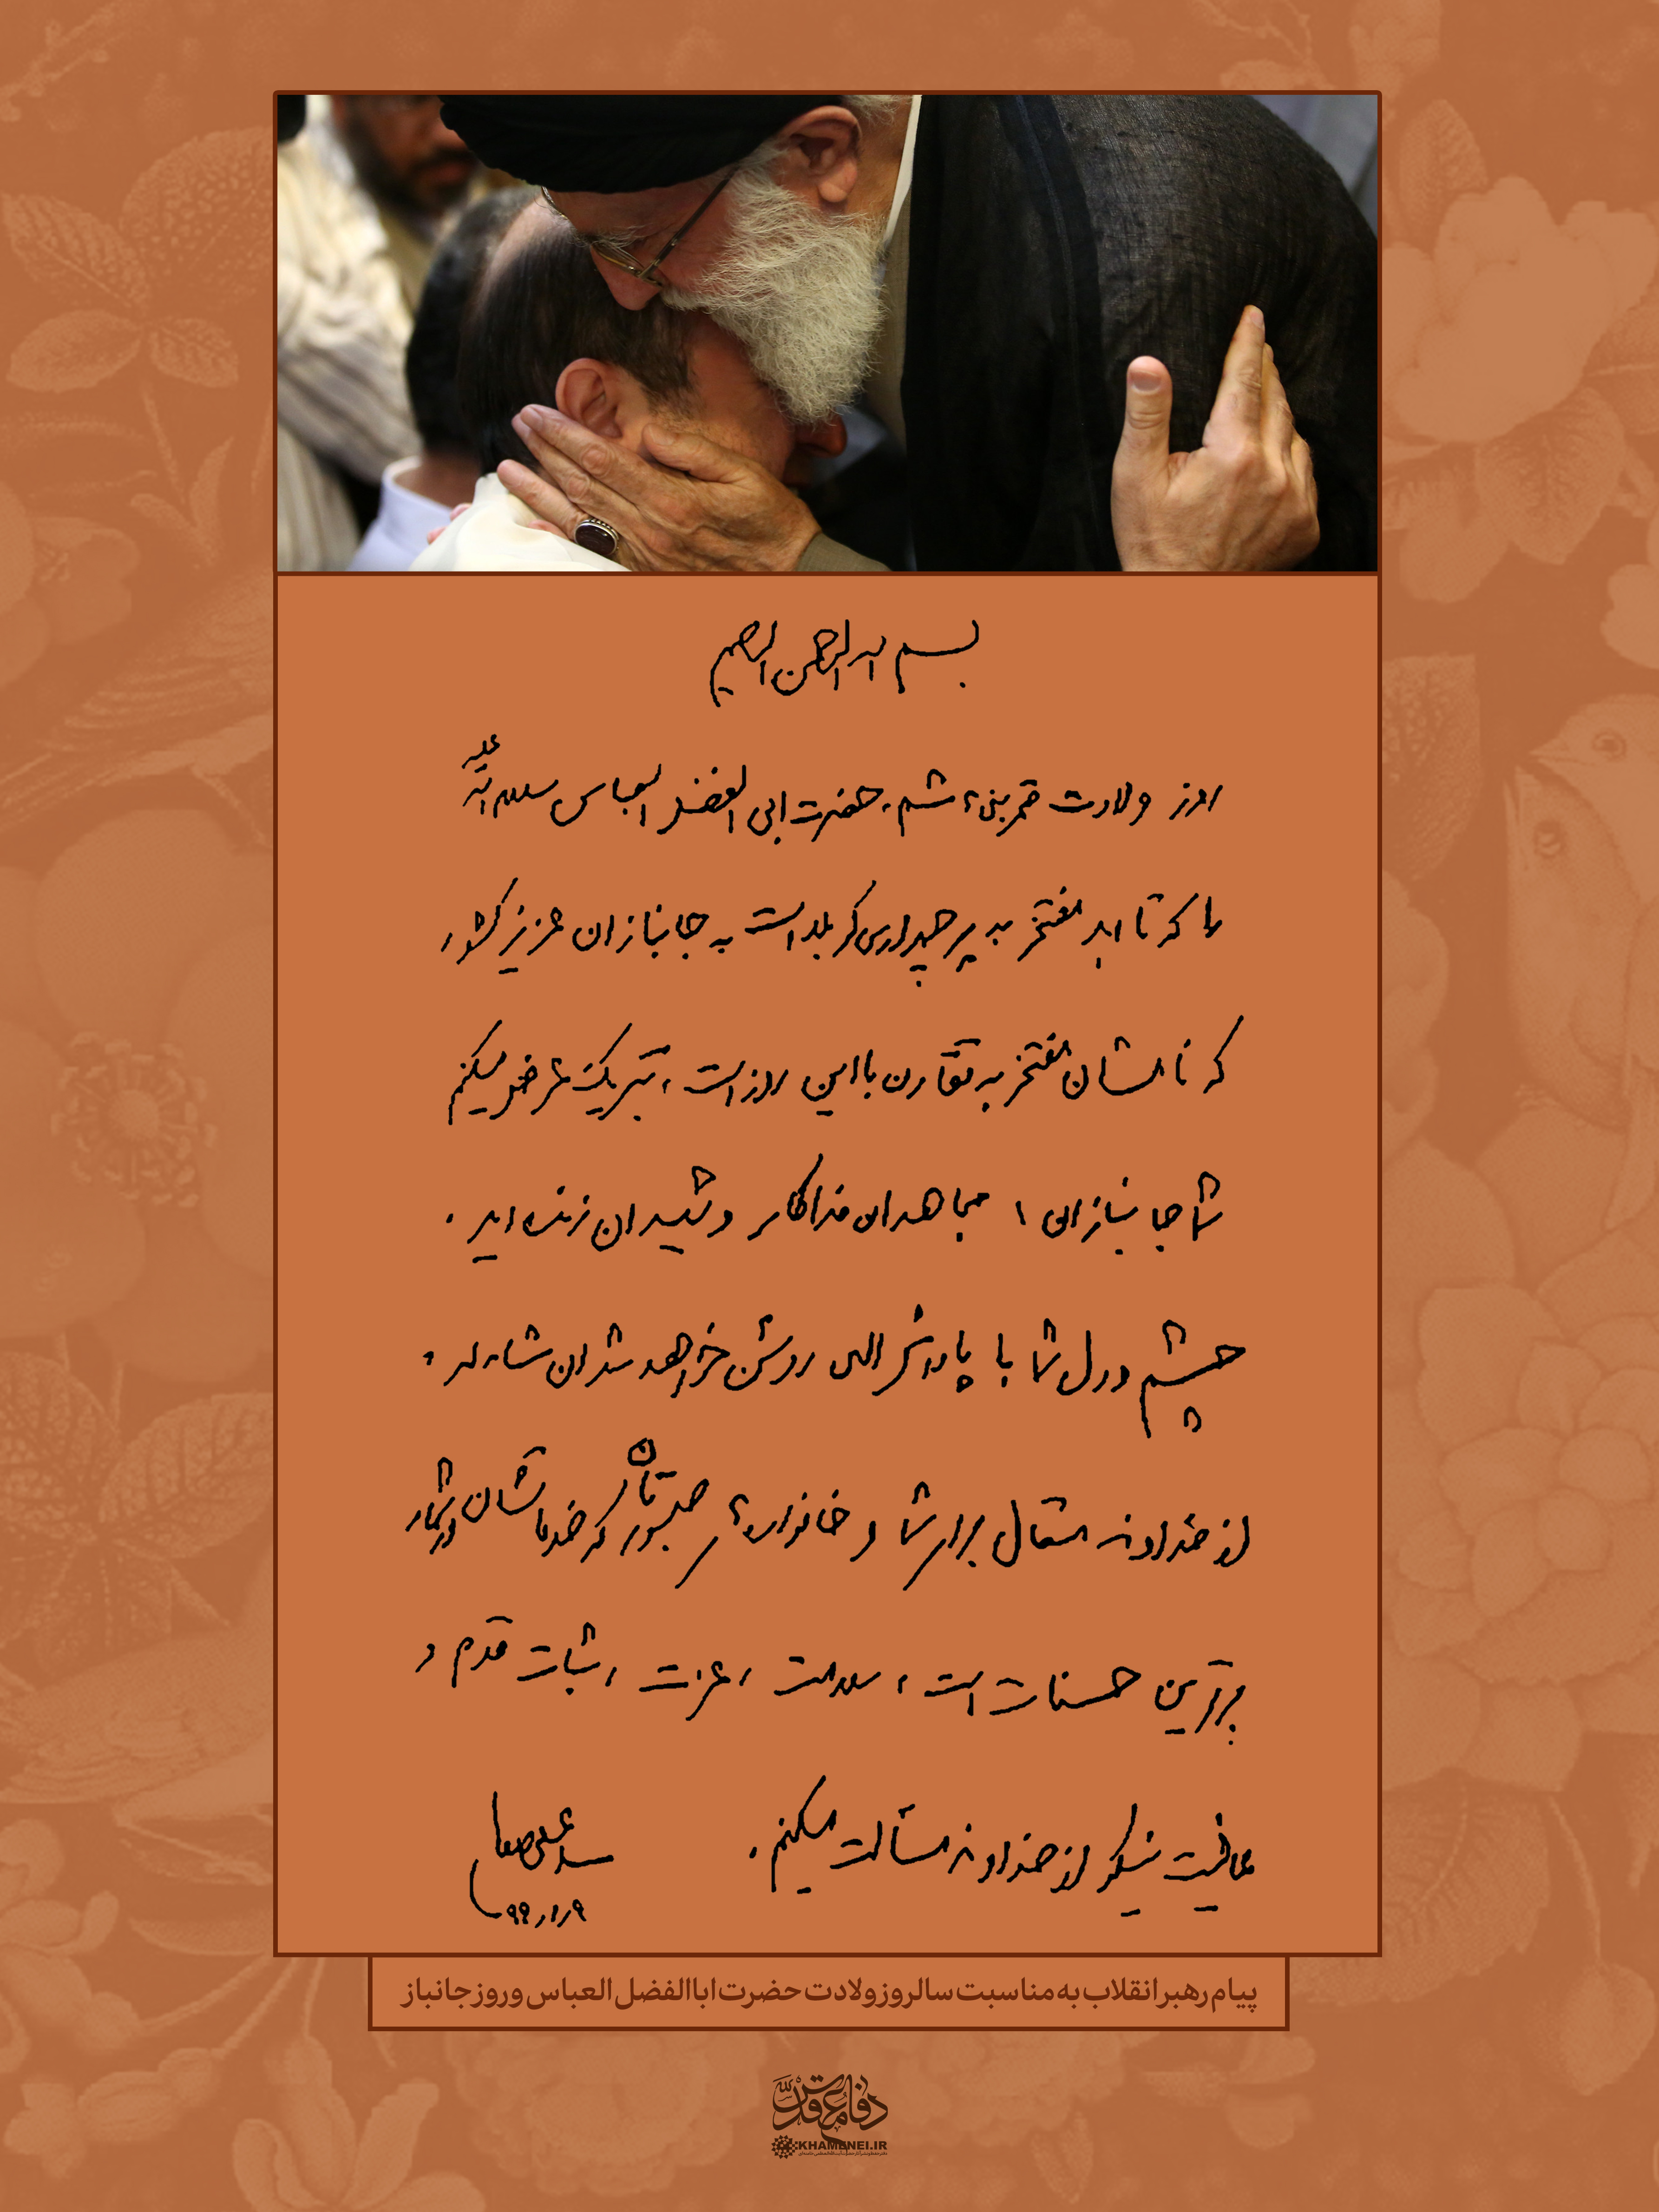 بسم الله الرحمن الرحیم
روز ولادت قمر بنی‌هاشم، حضرت ابی الفضل العباس سلام الله علیه
را که تا ابد مفتخر به پرچمداری کربلا است به جانبازان عزیز کشور،
که نامشان مفتخر به تقارن با این روز است، تبریک عرض میکنم
شما جانبازان، مجاهدان فداکار و شهیدان زنده‌اید.
چشم و دل شما با پاداش الهی روشن خواهد شد ان شاءالله.
از خداوند متعال برای شما و خانواده‌های صبورتان که خدماتشان در شمار
برترین حسنات است، سلامت، عزت، ثبات قدم و
عافیت نیکو از خداوند مسألت میکنم.
سید علی خامنه‌ای
۹۹/۱/۹
پیام رهبر انقلاب به مناسبت سالروز ولادت حضرت اباالفضل العباس و روز جانباز
دفاع مقدس
KHAMENEI.IR